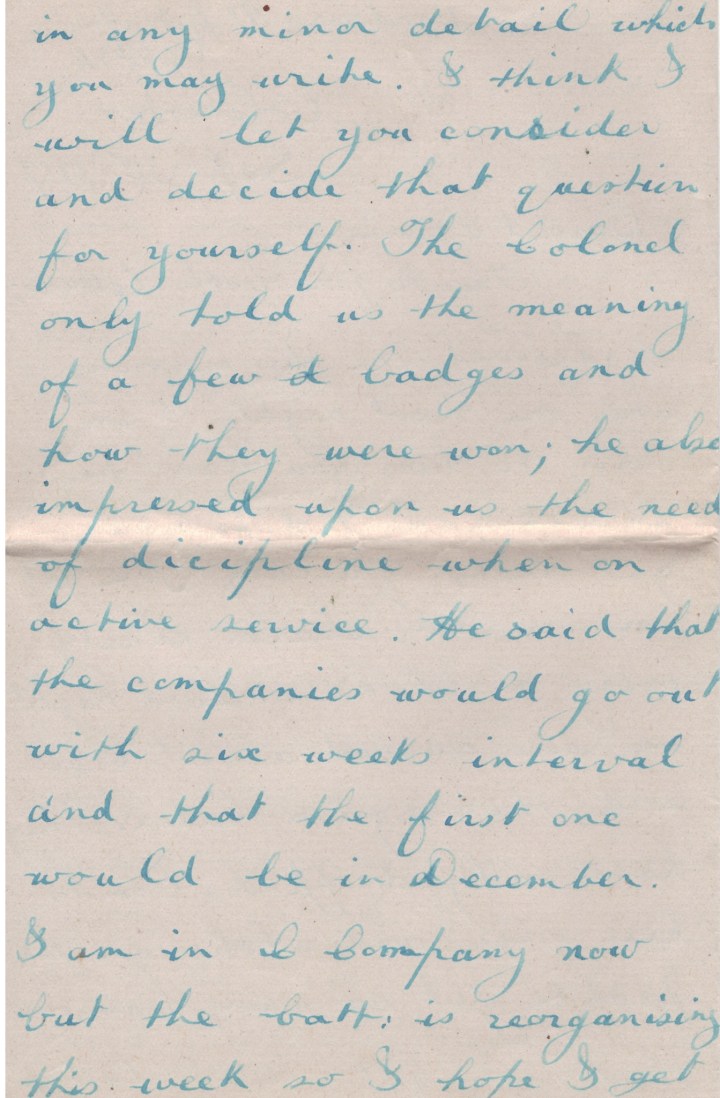 in any minor detail which
you may write. I think I
will let you consider
and decide that question
for yourself. The Colonel
only told us the meaning
of a few badges and
how they were won; he also
impressed upon us the need
of dicipline when on
active service. He said that
the companies would go out
with six weeks interval
and that the first one
would be in December.
I am in C Company now
but the batt: is reorganising
this week so I hope I get